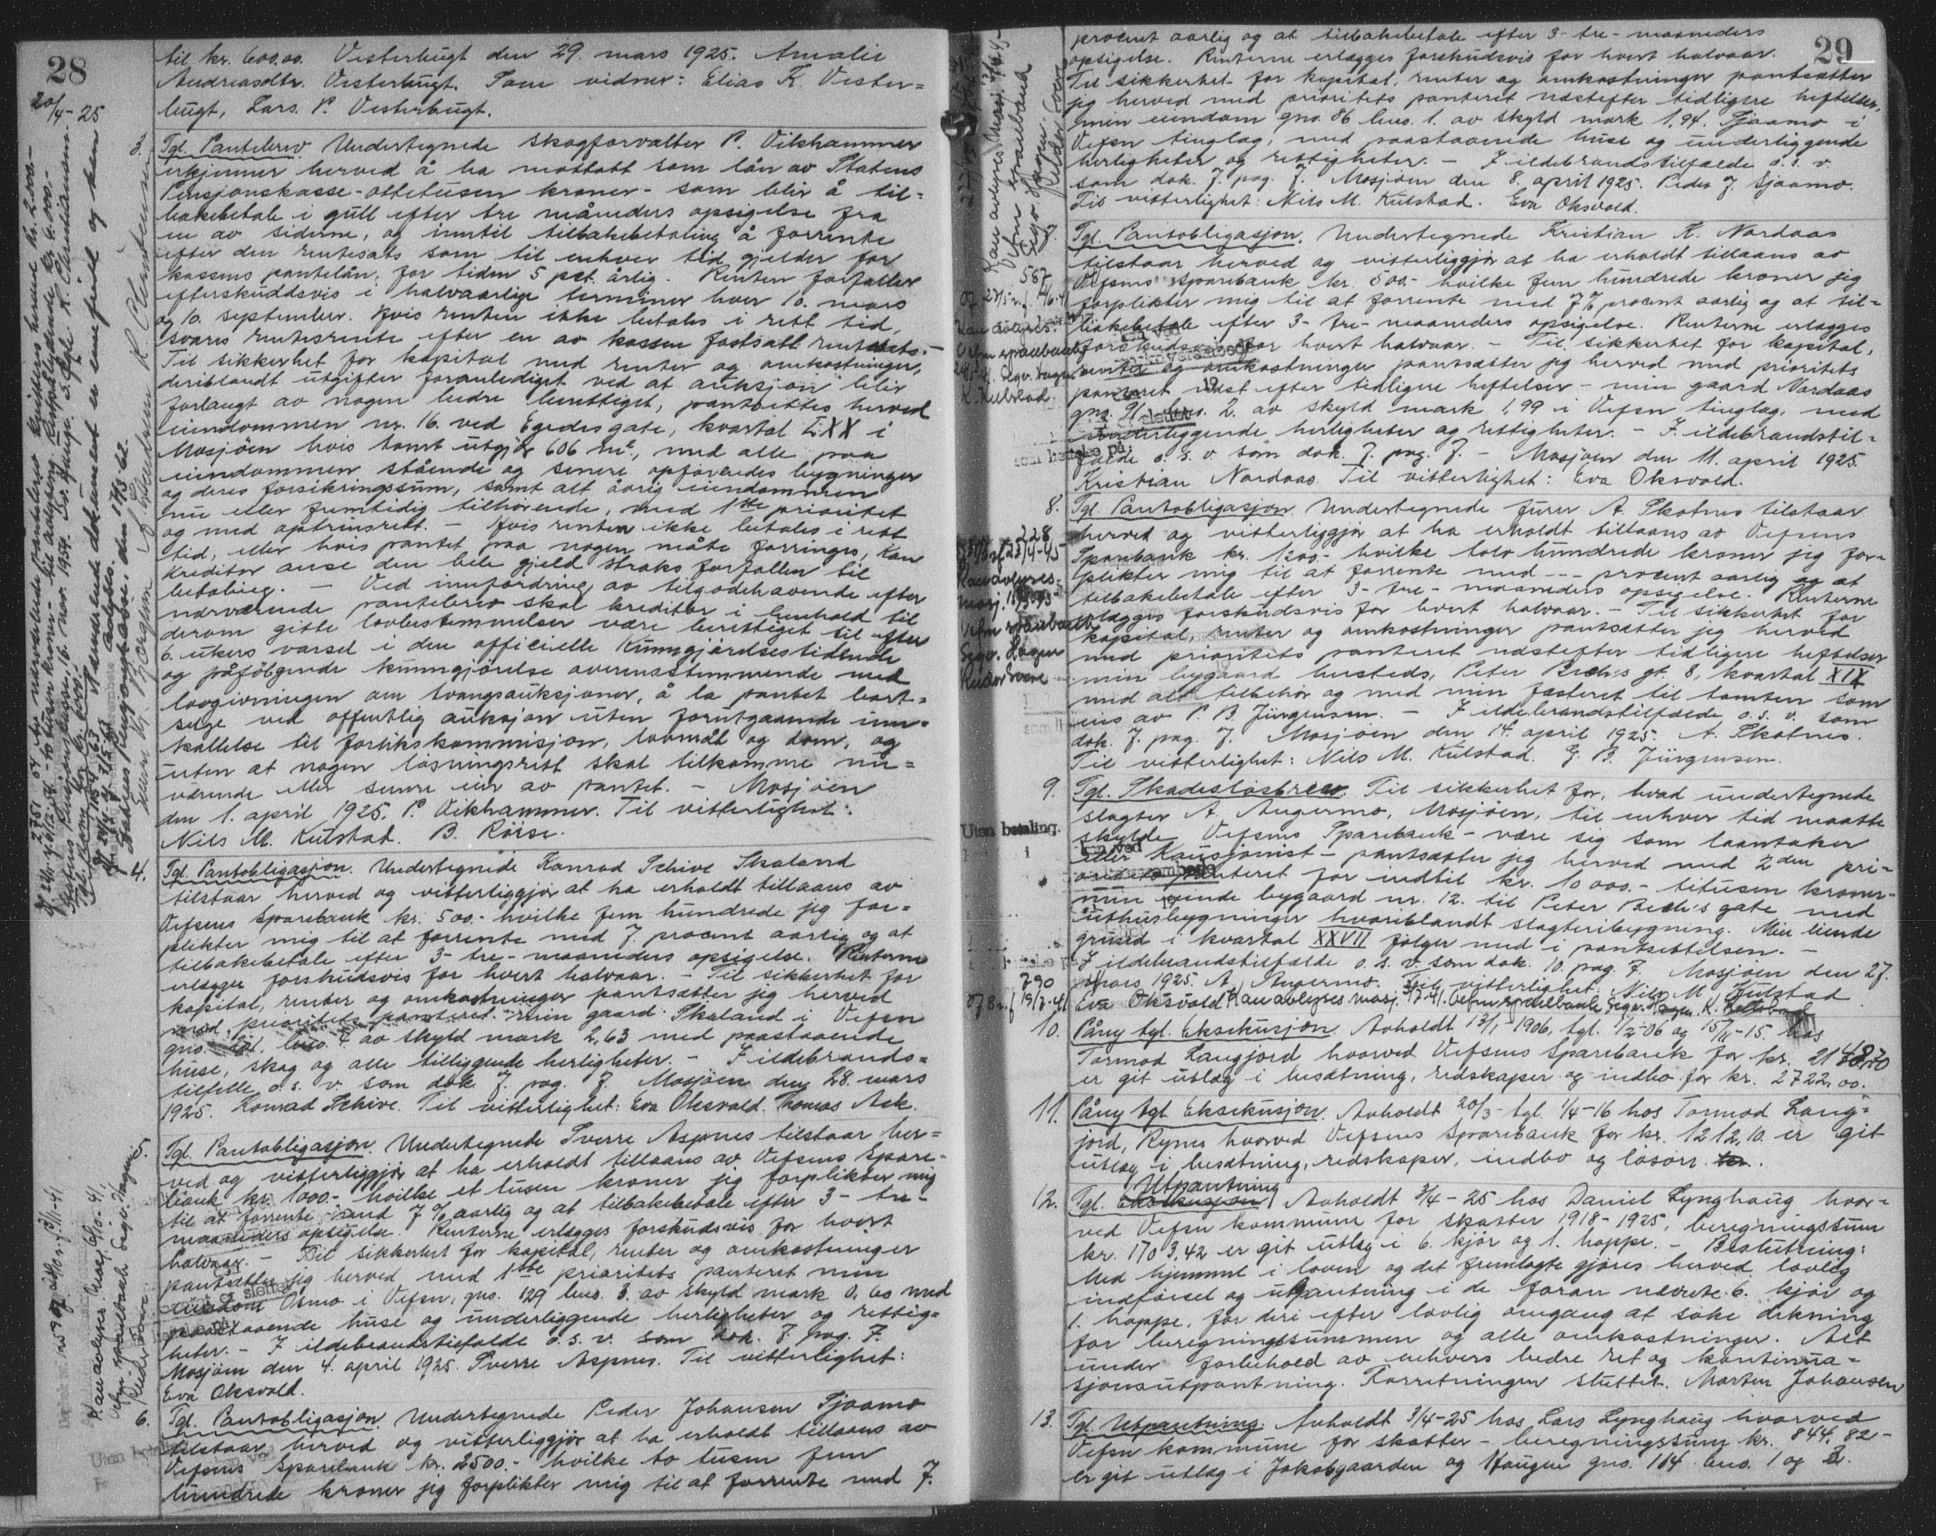 28
20/4-25
til kr. 600,00. Vesterbugt den 29. mars 1925. Amalie
Andreasdtr. Vesterbugt. Som vidner: Elias K. Vester=
bugt, Lars. P. Vesterbugt.
3. Tgl. Pantebrev. Undertegnede skogforvalter P. Vikhammer
erkjenner herved å ha mottatt som lån av Statens
Pensjonskasse - ottetusen kroner - som blir å til=
bakebetale i gull efter tre måneders opsigelse fra
en av siderne, og inntil tilbakebetaling å forrente
efter den rentesats som til enhver tid gjelder for
kassens pantelån, for tiden 5 pct. årlig. Renten forfaller
efterskuddsvis i halvaarlige terminer hver 10. mars
og 10. september. Hvis renten ikke betales i rett tid,
svares rentesrente efter en av kassen fastsatt rentesats.-
Til sikkerhet for kapital med renter og omkostninger,
deriblandt utgifter foranlediget ved at auksjon blir
forlangt av nogen bedre berettiget, pantsettes herved
eiendommen nr. 16. ved Egedesgate, kvartal LXX i
Mosjøen hvis tomt utgjør 606 m², med alle paa
eiendommen stående og senere opførendes bygninger
og deres forsikringssum, samt alt øvrig eiendommen
nu eller fremtidig tilhørende, med 1ste prioritet
og med optrinsrett. - Hvis renten ikke betales i rett
tid, eller hvis pantet paa nogen måte forringes, kan
kreditor anse den hele gjeld straks forfallen til
betaling. - Ved innfordring av tilgodehavende efter
nærværende pantebrev skal kreditor i henhold til
derom gitte lovbestemmelser være berettiget til efter
6. ukers varsel i den officielle Kunngjørelsestidende
og påfølgende kunngjørelse overensstemmende med
lovgivningen om tvangsauksjoner, å la pantet bort=
selge ved offentlig auksjon uten forutgaaende inn=
kallelse til forlikskommisjon, lovmål og dom, og
uten at nogen løsningsrett skal tilkomme nu=
værende eller senere eier av pantet. - Mosjøen
den 1. april 1925. P. Vikhammer. Til vitterlighet:
Nils M. Kulstad. B. Røise.
4. Tgl. Pantobligasjon. Undertegnede Konrad Schive Skaland
tilstaar herved og vitterliggjør at ha erholdt tillaans av
Vefsens Sparebank kr. 500.- hvilke fem hundrede jeg for=
plikter mig til at forrente med 7. procent aarlig og at
tilbakebetale efter 3- tre- maaneders opsigelse. Renterne
erlægges forskudsvis for hvert halvaar. - Til sikkerhet for
kapital, renter og omkostninger pantsætter jeg herved
med prioritets panteret min gaard Skaland i Vefsn
gno. bno. 4 av skyld mark 2,63 med paastaaende
huse, skog og alle tilliggende herligheter. - I ildebrands=
tilfelle o. s. v. som dok 7. pag. 7. Mosjøen den 28. mars
1925. Konrad Schive. Til vitterlighet: Eva Oksvold. Thomas Aek.
5. Tgl. Pantobligasjon. Undertegnede Sverre Aspnes tilstaar her=
ved og vitterliggjør at ha erholdt tillaans av Vefsens Spare-
bank kr. 1000.- hvilke et tusen kroner jeg forplikter mig
til at forrente med 7% aarlig og at tilbakebetale efter 3- tre-
maaneders opsigelse. Renterne erlægges forskudsvis for hvert
halvaar. - Til sikkerhet for kapital, renter og omkostninger
pantsætter jeg herved med 1ste prioritets panteret min
eiendom Osmo i Vefsn, gno. 129 bno. 3. av skyld mark 0,60 med
paastaaende huse og underliggende herligheter og rettig=
heter. - I ildebrandstilfælde o. s. v. som dok. 7. pag. 7.
Mosjøen den 4. april 1925. Sverre Aspnes. Til vitterlighet:
Eva Oksvold.
6. Tgl. Pantobligasjon. Undertegnede Peder Johansen Sjaamo
tilstaar herved og vitterliggjør at ha erholdt tillaans av
Vefsens Sparebank kr. 2500.- hvilke to tusen fem
hundrede kroner jeg forplikter mig til at forrente med 7.
29
procent aarlig og at tilbakebetale efter 3- tre- maaneders
opsigelse. Renterne erlægges forskudsvis for hvert halvaar.
Til sikkerhet for kapital, renter og omkostninger pantsætter
jeg herved med prioritets panteret næstefter tidligere heftelser,
min eiendom gno. 86 bno. 1. av skyld mark 1,94. Sjaamo i
Vefsn tinglag, med paastaaende huse og underliggende
herligheter og rettigheter. - I ildebrandstilfælde o. s. v.
som dok. 7. pag. 7. Mosjøen den 8. april 1925. Peder J. Sjaamo.
Til vitterlighet: Nils M. Kulstad. Eva Oksvold.
Tgl. Pantobligasjon. Undertegnede Kristian K. Nordaas
tilstaar herved og vitterliggjør at ha erholdt tillaans av
Vefsens Sparebank kr. 500.- hvilke fem hundrede kroner jeg
forplikter mig til at forrente med 7% procent aarlig og at til=
bakebetale efter 3- tre- maaneders opsigelse. Renterne erlægges
forskudsvis for hvert halvaar. - Til sikkerhet for kapital,
renter og omkostninger pantsætter jeg herved med prioritets
panteret næst efter tidligere heftelser - min gaard Nordaas
gno. 91 bno. 2. av skyld mark 1,99 i Vefsn tinglag, med
underliggende herligheter og rettigheter. - I ildebrandstil=
fælde o. s. v. som dok. 7. pag. 7. - Mosjøen den 11. april 1925.
Kristian Nordaas. Til vitterlighet: Eva Oksvold.
8. Tgl. Pantobligasjon. Undertegnede furer A. Skotnes tilstaar
herved og vitterliggjør at ha erholdt tillaans av Vefsens
Sparebank kr. 1200.- hvilke tolv hundrede kroner jeg for=
plikter mig til at forrente med - - - procent aarlig og at
tilbakebetale efter 3- tre- maaneders opsigelse. Renterne
erlægges forskudsvis for hvert halvaar. - Til sikkerhet for
kapital, renter og omkostninger pantsætter jeg herved
med prioritets panteret næstefter tidligere heftelser
min bygaard husteds, Peter Bech's gt. 8, kvartal XIX
med alt tilbehør og med min fæsteret til tomten som
eies av P. B. Jürgensen. - I ildebrandstilfælde o. s. v. som
dok. 7. pag. 7. Mosjøen den 14. april 1925. A. Skotnes.
Til vitterlighet: Nils M. Kulstad. G. B. Jürgensen.
9. Tgl. Skadesløsbrev. Til sikkerhet for, hvad undertegnede
slagter A. Angermo, Mosjøen, til enhver tid maatte
skylde Vefsens Sparebank - være sig som laantaker
eller kausjonist - pantsætter jeg herved med 2den pri=
oritets panteret for indtil kr. 10 000.- titusen kroner-
min eiende bygaard nr. 12. til Peter Bech's gate med
uthusbygninger hvoriblandt slagteribygning. Min eiende
grund i kvartal XXVII følger med i pantsettelsen. -
I ildebrandstilfælde o. s. v. som dok. 10. pag. 7. Mosjøen den 27.
mars 1925. A. Angermo. Til vitterlighet. Nils M. Kulstad
Eva Oksvold.
10. Påny tgl. Eksekusjon. Avholdt 13/1-1906, tgl. 1/2-06 og 15/11-15. hos
Tormod Langjord hvorved Vefsens Sparebank for kr.
er git utlæg i besætning, redskaper og indbo for kr. 2722,00.
11. Påny tgl. Eksekusjon. Avholdt 20/3- tgl. 1/4-16 hos Tormod Lang=
jord, Rynes hvorved Vefsens Sparebank for kr. 1212,10. er git
utlæg i besætning, redskaper, indbo og løsøre.
12. Tgl. Utpantning Avholdt 3/4-25 hos Daniel Lynghaug hvor=
ved Vefsn kommune for skatter 1918-1925, beregningssum
kr. 1703,42 er git utlæg i 6. kjør og 1. hoppe. - Beslutning:
Med hjemmel i loven og det fremlagte gjøres herved lovlig
indførsel og utpantning i de foran nævnte 6. kjør og
1. hoppe, for deri efter lovlig omgang at søke dekning
for beregningssummen og alle omkostninger. Alt
under forbehold av enhvers bedre ret og kontinua=
sjonsutpantning. Forretningen sluttet. Morten Johansen
13. Tgl. Utpantning. Avholdt 3/4-25 hos Lars Lynghaug hvorved
Vefsn kommune for skatter - beregningssum kr. 844,82-
er git utlæg i Jakobgaarden og Haugen gno. 104 bno. 1 og 2.